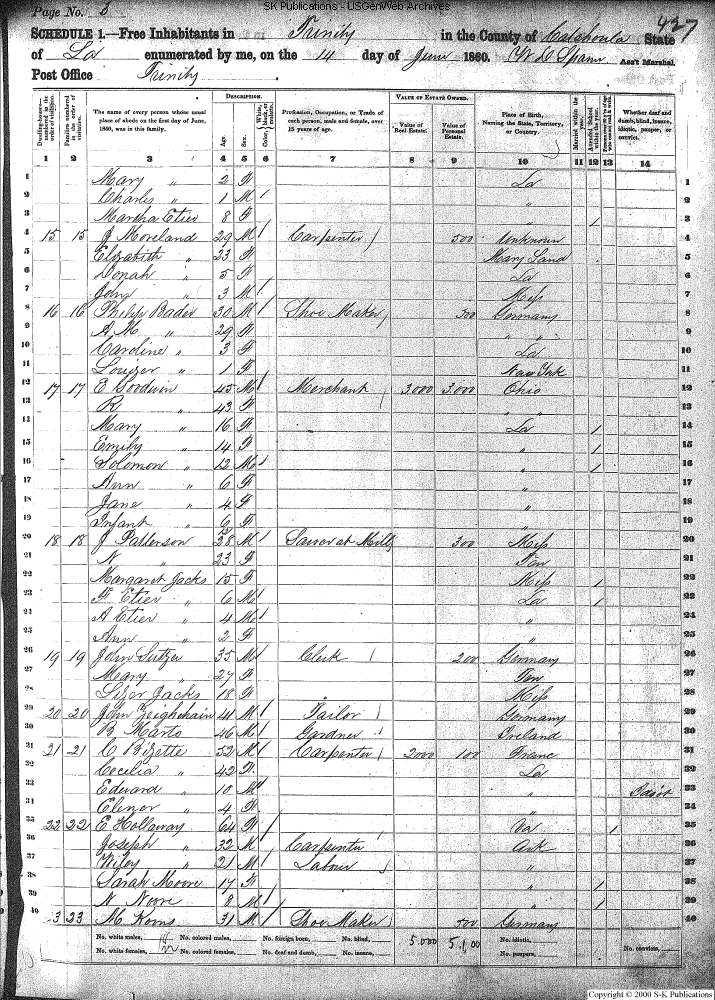 SK Publications - USGenWeb Archives
Page No. 5
427
SCHEDULE 1.—Free Inhabitants in Trinity in the County of Catahoula State
of La enumerated by me, on the 14 day of June 1860. W C Spann Ass't Marshal.
Post Office Trinity
Dwelling-houses—numbered in the order of visitation.
Families numbered in the order of visitation.
The name of every person whose usual place of abode on the first day of June, 1860, was in this family.
DESCRIPTION.
Age.
Sex.
Color, White, black, or mulatto.
Profession, Occupation, or Trade of each person, male and female, over 15 years of age.
VALUE OF ESTATE OWNED.
Value of Real Estate.
Value of Personal Estate.
Place of Birth, Naming the State, Territory, or Country.
Married within the year.
Attended School within the year.
Whether deaf and dumb, blind, insane, idiotic, pauper, or convict.
1 2 3 4 5 6 7 8 9 10 11 12 13 14
1 Mary " 2 F La 1
2 Charles " 1 M / " 2
3 Martha Etier 8 F / 3
4 15 15 J Moreland 29 M / Carpenter 500 Unknown 4
5 Elizabith " 23 F Mary Land 5
6 Donah " 5 F La 6
7 " 3 M / Miss 7
8 16 16 Philip Bader 30 M / Shoe Maker 500 Germany 8
9 A M " 29 F " " 9
10 Caroline " 3 F La 10
11 Louizer " 1 F New York 11
12 17 17 E Goodwin 45 M / Merchant 3000 3,000 Ohio 12
13 R " 43 F " " 13
14 Mary " 16 F La / 14
15 Emily " 14 F " / 15
16 Solomon " 12 M / " / 16
17 Ann " 6 F " 17
18 Jane " 4 F " 18
19 Infant " F " 19
20 18 18 J Patterson 28 M / 300 Miss 20
21 N " 23 F Ten 21
22 Margaret Jacks 15 F Miss / 22
23 F Etier " 6 M / La / 23
24 A Etier " 4 M / " 24
25 Ann " 2 F " 25
26 19 19 John Sutzer 35 M / Clerk 200 Germany 26
27 Mary " 27 F Ten 27
28 Lizer Jacks 18 F Miss 28
29 20 20 John Zeighchain 41 M / Tailor Germany 29
30 B Marto 46 M / Gardner Ireland 30
31 21 21 C Bizette 52 M / Carpenter 2000 100 Franc 31
32 Cecelia " 42 F La 32
33 Edward " 10 M " Idiot 33
34 Elinor " 4 F " 34
35 22 22 E Hollaway 64 F Va / 35
36 Joseph " 32 M Carpenter Ark 36
37 Wiley " 21 M / Labour " 37
38 Sarah Moore 17 F " / 38
39 N Noore 8 M / " / 39
40 3 23 M Korns 31 M / Shoe Maker 500 Germany 40
No. white males, No. colored males, No. foreign born, No. blind, 5.000 5.100 No. idiotic,
No. white females, No. colored females, No. deaf and dumb, No. insane, No. paupers, No. convicts,
Copyright © 2000 S-K Publications